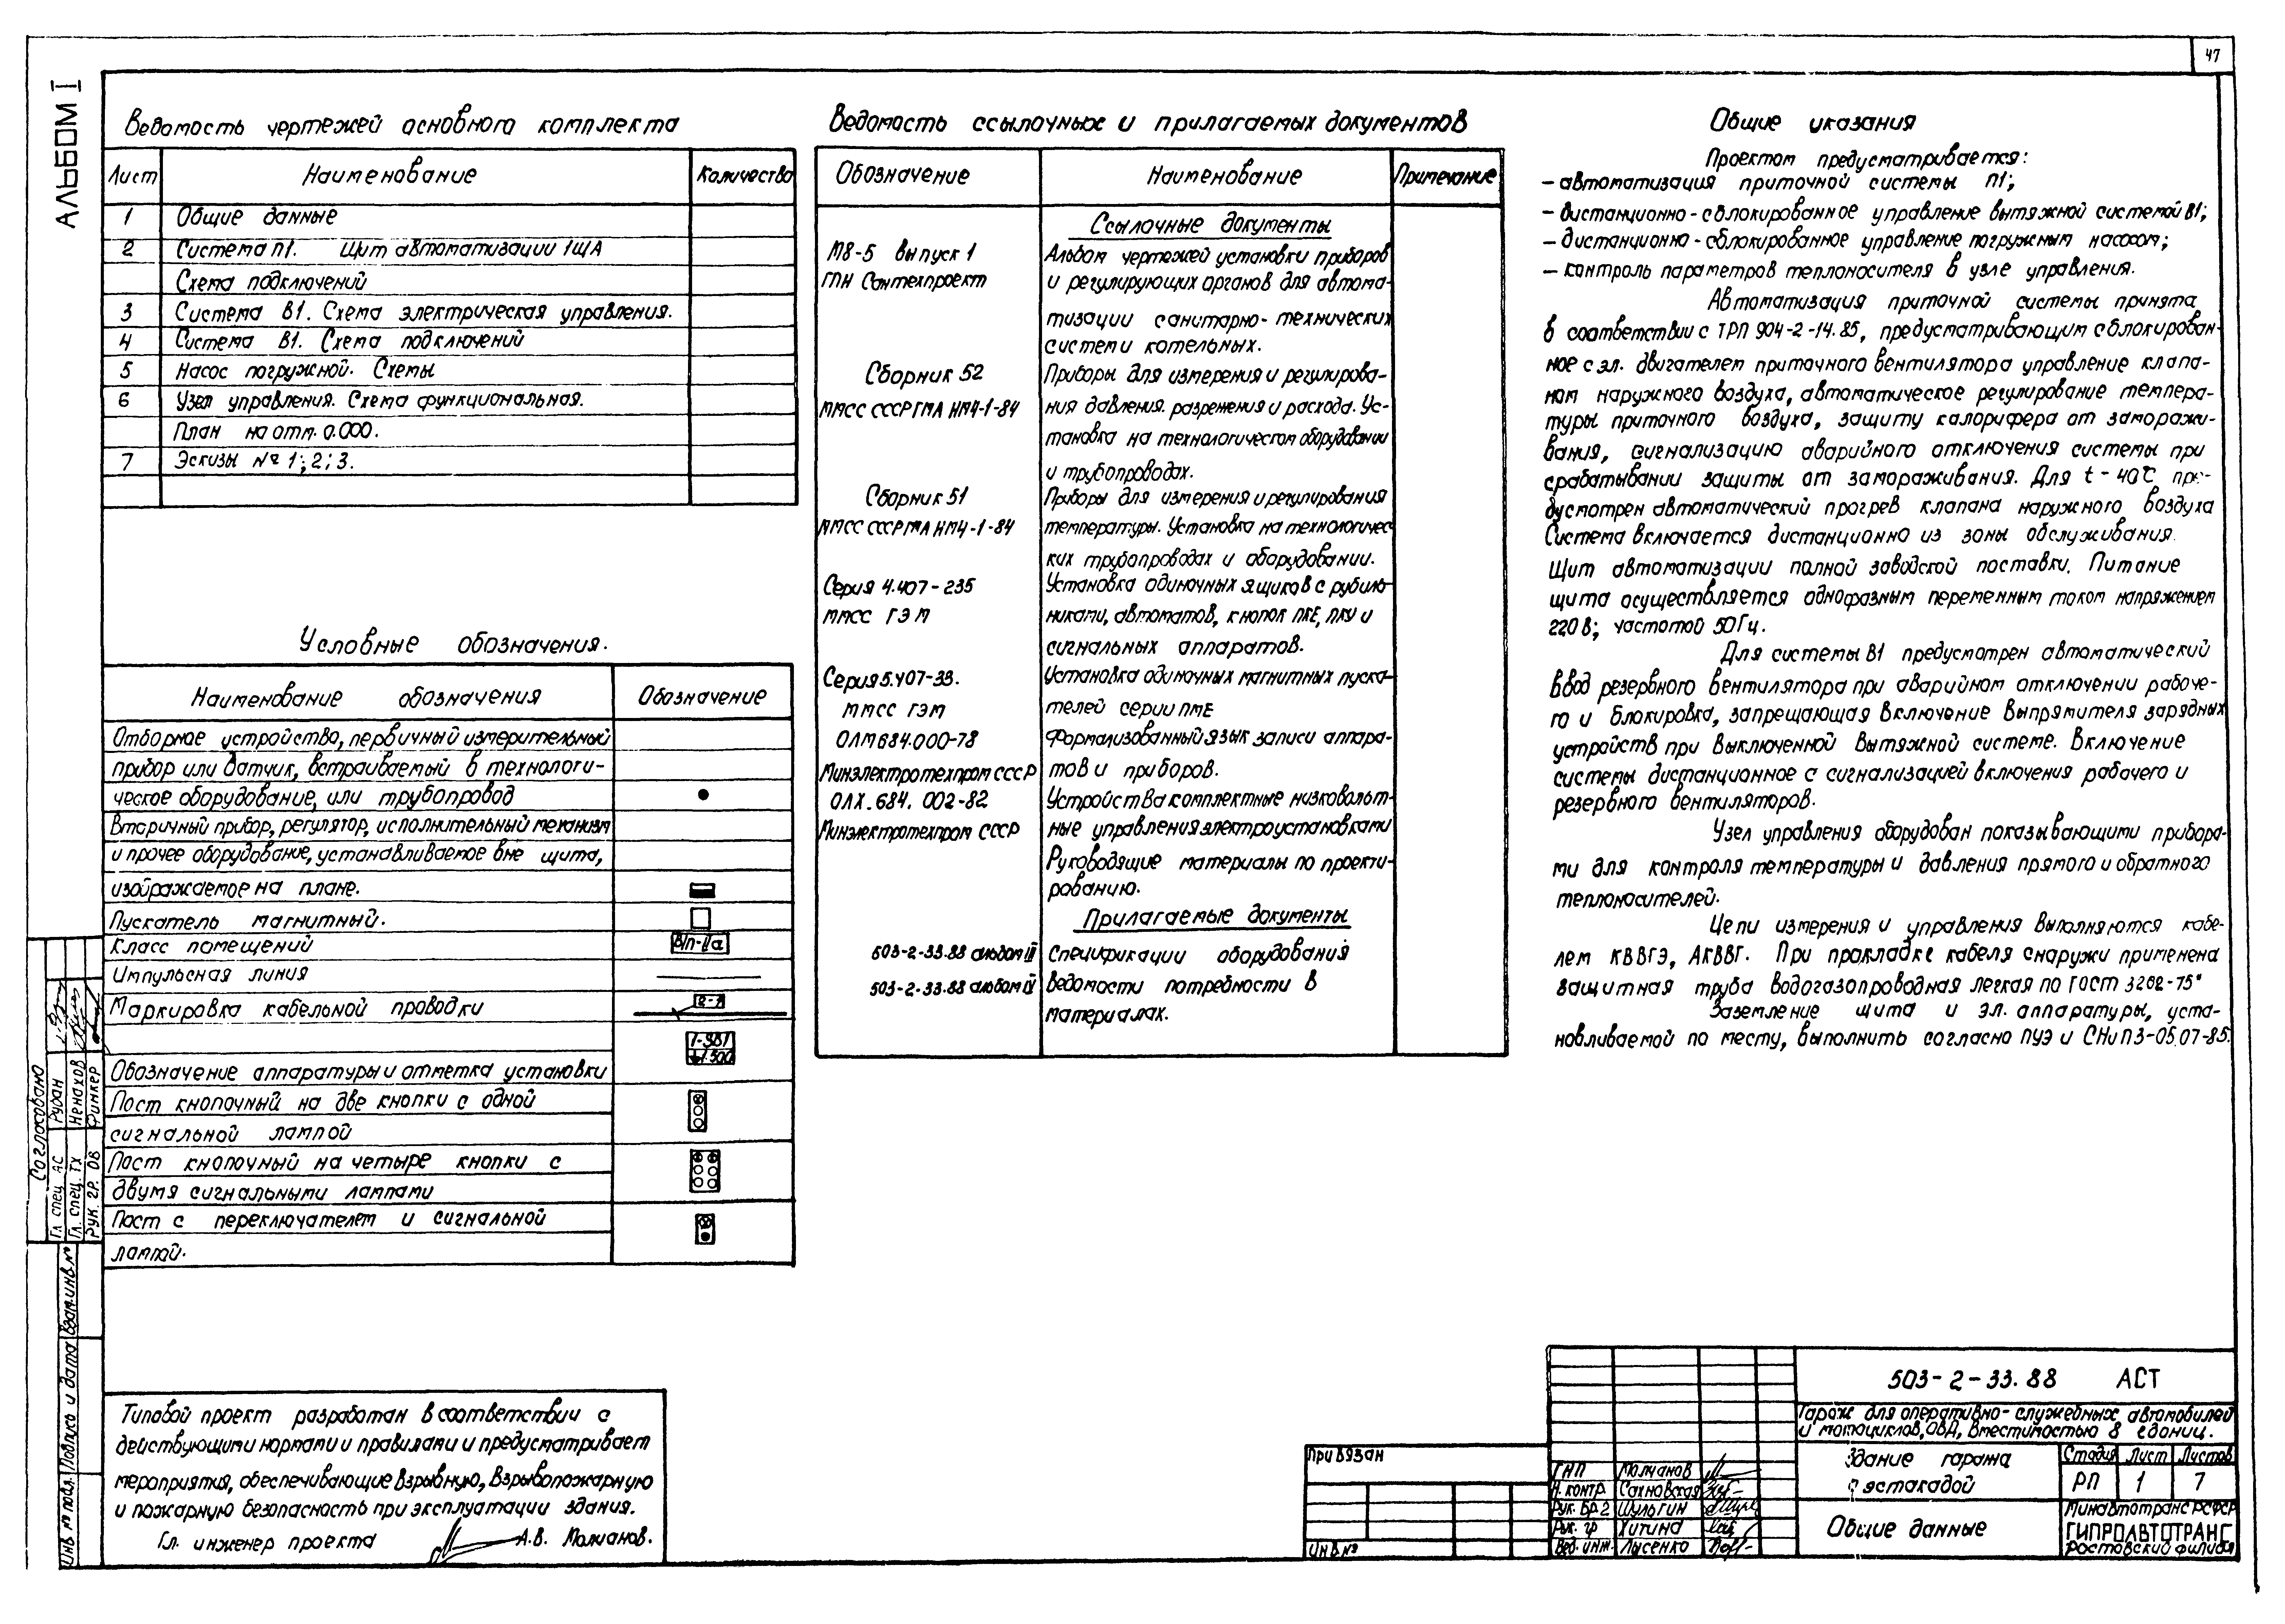 47
АЛЬБОМ I
Ведомость чертежей основного комплекта
Лист Наименование Количество
1 Общие данные
2 Система П1. Щит автоматизации 1ЩА
Схема подключений
3 Система В1. Схема электрическая управления.
4 Система В1. Схема подключений
5 Насос погружной. Схемы
6 Узел управления. Схема функциональная.
План на отм. 0.000.
7 Эскизы №№ 1; 2; 3.
Условные обозначения.
Наименование обозначения Обозначение
Отборное устройство, первичный измерительный
прибор или датчик, встраиваемый в технологи-
ческое оборудование, или трубопровод
Вторичный прибор, регулятор, исполнительный механизм
и прочее оборудование, устанавливаемое вне щита,
изображаемое на плане.
Пускатель магнитный.
Класс помещений В/п-IIа
Импульсная линия
Маркировка кабельной проводки 2-1
1-SB1
Обозначение аппаратуры и отметка установки
Пост кнопочный на две кнопки с одной
сигнальной лампой
Пост кнопочный на четыре кнопки с
двумя сигнальными лампами
Пост с переключателем и сигнальной
лампой.
Типовой проект разработан в соответствии с
действующими нормами и правилами и предусматривает
мероприятия, обеспечивающие взрывную, взрывопожарную
и пожарную безопасность при эксплуатации здания.
Гл. инженер проекта А.В. Молчанов.
Ведомость ссылочных и прилагаемых документов
Обозначение Наименование Примечание
Ссылочные документы
М8-5 выпуск 1 Альбом чертежей установки приборов
ГПИ Сантехпроект и регулирующих органов для автома-
тизации санитарно-технических
систем и котельных.
Сборник 52 Приборы для измерения и регулирова-
ММСС СССР ГМА НМ4-1-84 ния давления. разрежения и расхода. Ус-
тановка на технологическом оборудовании
и трубопроводах.
Сборник 51 Приборы для измерения и регулирования
ММСС СССР ГМА НМ4-1-84 температуры. Установка на технологичес-
ких трубопроводах и оборудовании.
Серия 4.407-235 Установка одиночных ящиков с рубиль-
ММСС ГЭМ никами, автоматов, кнопок ПКЕ, ПКУ и
сигнальных аппаратов.
Серия 5.407-33. Установка одиночных магнитных пуска-
ММСС ГЭМ телей серии ПМЕ
ОЛМ 684.000-78 Формализованный язык записи аппара-
Минэлектротехпром СССР тов и приборов.
ОЛХ.684. 002-82 Устройства комплектные низковольт-
Минэлектротехпром СССР ные управления электроустановками
Руководящие материалы по проекти-
рованию.
Прилагаемые документы
503-2-33.88 альбом III Спецификации оборудования
503-2-33.88 альбом IV Ведомости потребности в
материалах.
Общие указания
Проектом предусматривается:
– автоматизация приточной системы П1;
– дистанционно-сблокированное управление вытяжной системой В1;
– дистанционно-сблокированное управление погружным насосом;
– контроль параметров теплоносителя в узле управления.
Автоматизация приточной системы принята
в соответствии с ТРП 904-2-14.85, предусматривающим сблокирован-
ное с эл. двигателем приточного вентилятора управление клапа-
ном наружного воздуха, автоматическое регулирование темпера-
туры приточного воздуха, защиту калорифера от заморажи-
вания, сигнализацию аварийного отключения системы при
срабатывании защиты от замораживания. Для t - 40°С пре-
дусмотрен автоматический прогрев клапана наружного воздуха
Система включается дистанционно из зоны обслуживания.
Щит автоматизации полной заводской поставки. Питание
щита осуществляется однофазным переменным током напряжением
220 В; частотой 50 Гц.
Для системы В1 предусмотрен автоматический
ввод резервного вентилятора при аварийном отключении рабоче-
го и блокировка, запрещающая включение выпрямителя зарядных
устройств при выключенной вытяжной системе. Включение
системы дистанционное с сигнализацией включения рабочего и
резервного вентиляторов.
Узел управления оборудован показывающими прибора-
ми для контроля температуры и давления прямого и обратного
теплоносителей.
Цепи измерения и управления выполняются кабе-
лем КВВГЭ, АКВВГ. При прокладке кабеля снаружи применена
защитная труба водогазопроводная легкая по ГОСТ 3262-75*
Заземление щита и эл. аппаратуры, уста-
новливаемой по месту, выполнить согласно ПУЭ и СНиП 3-05.07-85.
Согласовано
Гл спец АС Рудан
Гл. спец. ТХ Ненахов
Рук. гр. ОВ Финкер
Инв № подл. Подпись и дата Взам.инв.№
Привязан
Инв.№
ГИП Молчанов
Н. контр Сахновская
Рук. БР-2 Шульгин
Рук. гр Хитина
Вед. инж. Лысенко
503-2-33.88 АСТ
Гараж для оперативно-служебных автомобилей
и мотоциклов, ОВД, вместимостью 8 единиц.
Здание гаража
с эстакадой
Стадия Лист Листов
РП 1 7
Общие данные
Минавтотранс РСФСР
ГИПРОАВТОТРАНС
Ростовский филиал